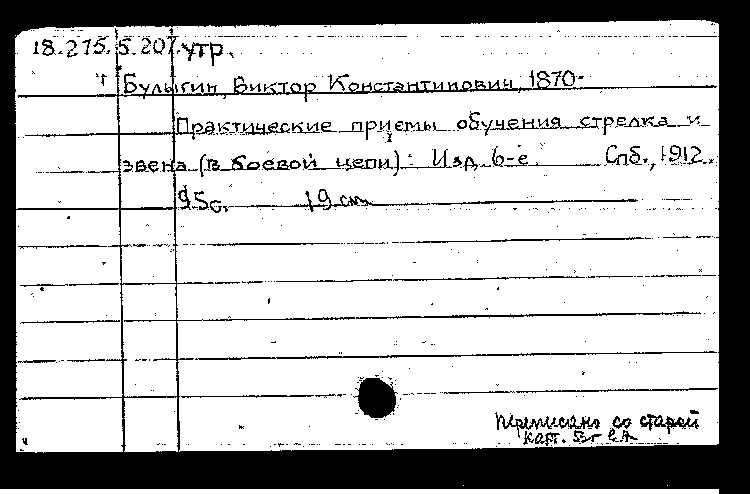 18.275.5.207 утр.
Булыгин, Виктор Константинович, 1870-
Практические приемы обучения стрелка и
звена (в боевой цепи). Изд. 6-е. Спб., 1912.
95с. 19 см
Переписано со старой
карт.